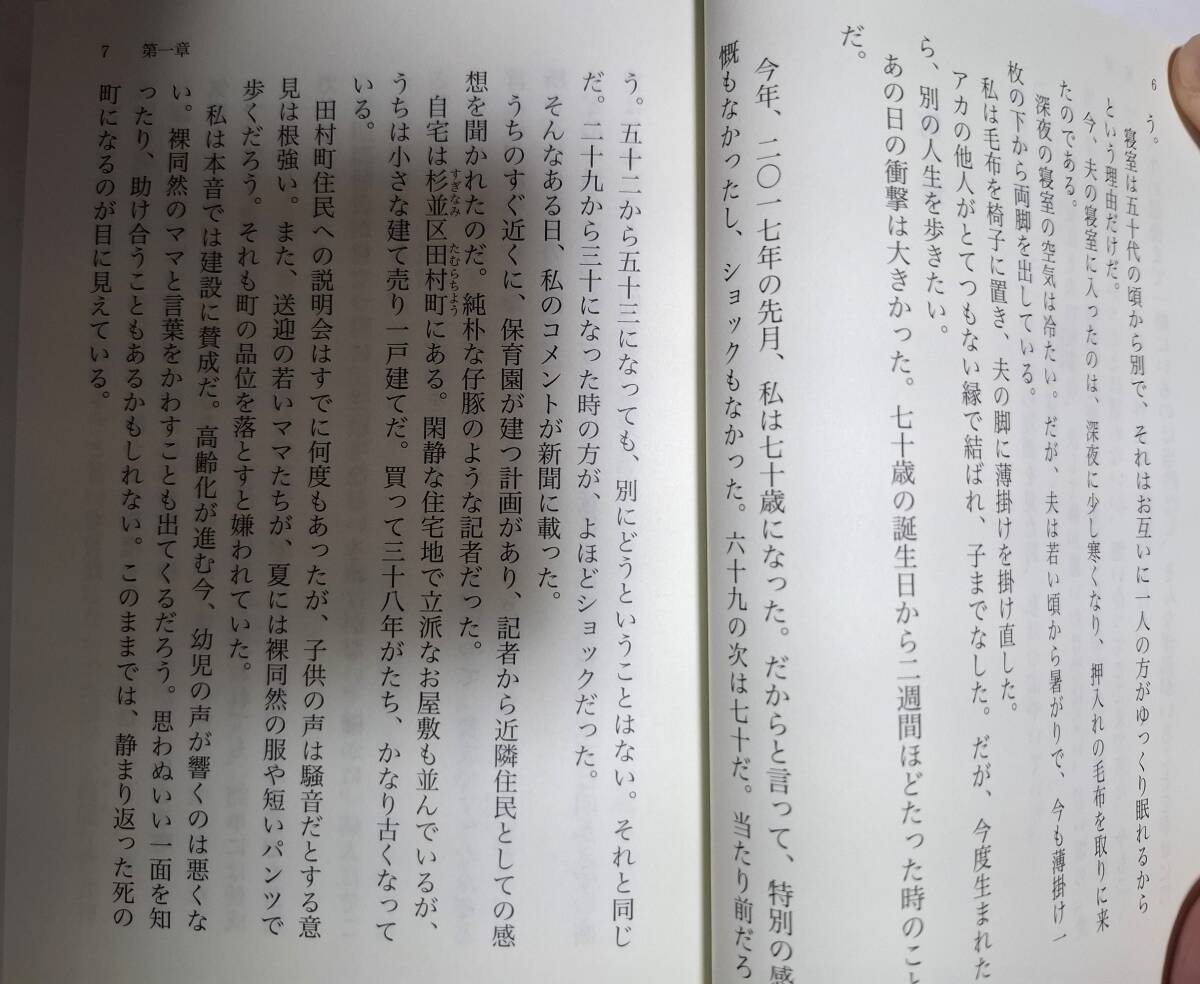 6
う。
寝室は五十代の頃から別で、それはお互いに一人の方がゆっくり眠れるから
という理由だけだ。
今、夫の寝室に入ったのは、深夜に少し寒くなり、押入れの毛布を取りに来
たのである。
深夜の寝室の空気は冷たい。だが、夫は若い頃から暑がりで、今も薄掛け一
枚の下から両脚を出している。
私は毛布を椅子に置き、夫の脚に薄掛けを掛け直した。
アカの他人がとてつもない縁で結ばれ、子までなした。だが、今度生まれた
ら、別の人生を歩きたい。
あの日の衝撃は大きかった。七十歳の誕生日から二週間ほどたった時のこと
だ。
今年、二〇一七年の先月、私は七十歳になった。だからと言って、特別の感
慨もなかったし、ショックもなかった。六十九の次は七十だ。当たり前だろ
7 第一章
う。五十二から五十三になっても、別にどうということはない。それと同じ
だ。二十九から三十になった時の方が、よほどショックだった。
そんなある日、私のコメントが新聞に載った。
うちのすぐ近くに、保育園が建つ計画があり、記者から近隣住民としての感
想を聞かれたのだ。純朴な仔豚のような記者だった。
自宅は杉並区田村町にある。閑静な住宅地で立派なお屋敷も並んでいるが、
すぎなみ たむらちよう
うちは小さな建て売り一戸建てだ。買って三十八年がたち、かなり古くなって
いる。
田村町住民への説明会はすでに何度もあったが、子供の声は騒音だとする意
見は根強い。また、送迎の若いママたちが、夏には裸同然の服や短いパンツで
歩くだろう。それも町の品位を落とすと嫌われていた。
私は本音では建設に賛成だ。高齢化が進む今、幼児の声が響くのは悪くな
い。裸同然のママと言葉をかわすことも出てくるだろう。思わぬいい一面を知
ったり、助け合うこともあるかもしれない。このままでは、静まり返った死の
町になるのが目に見えている。